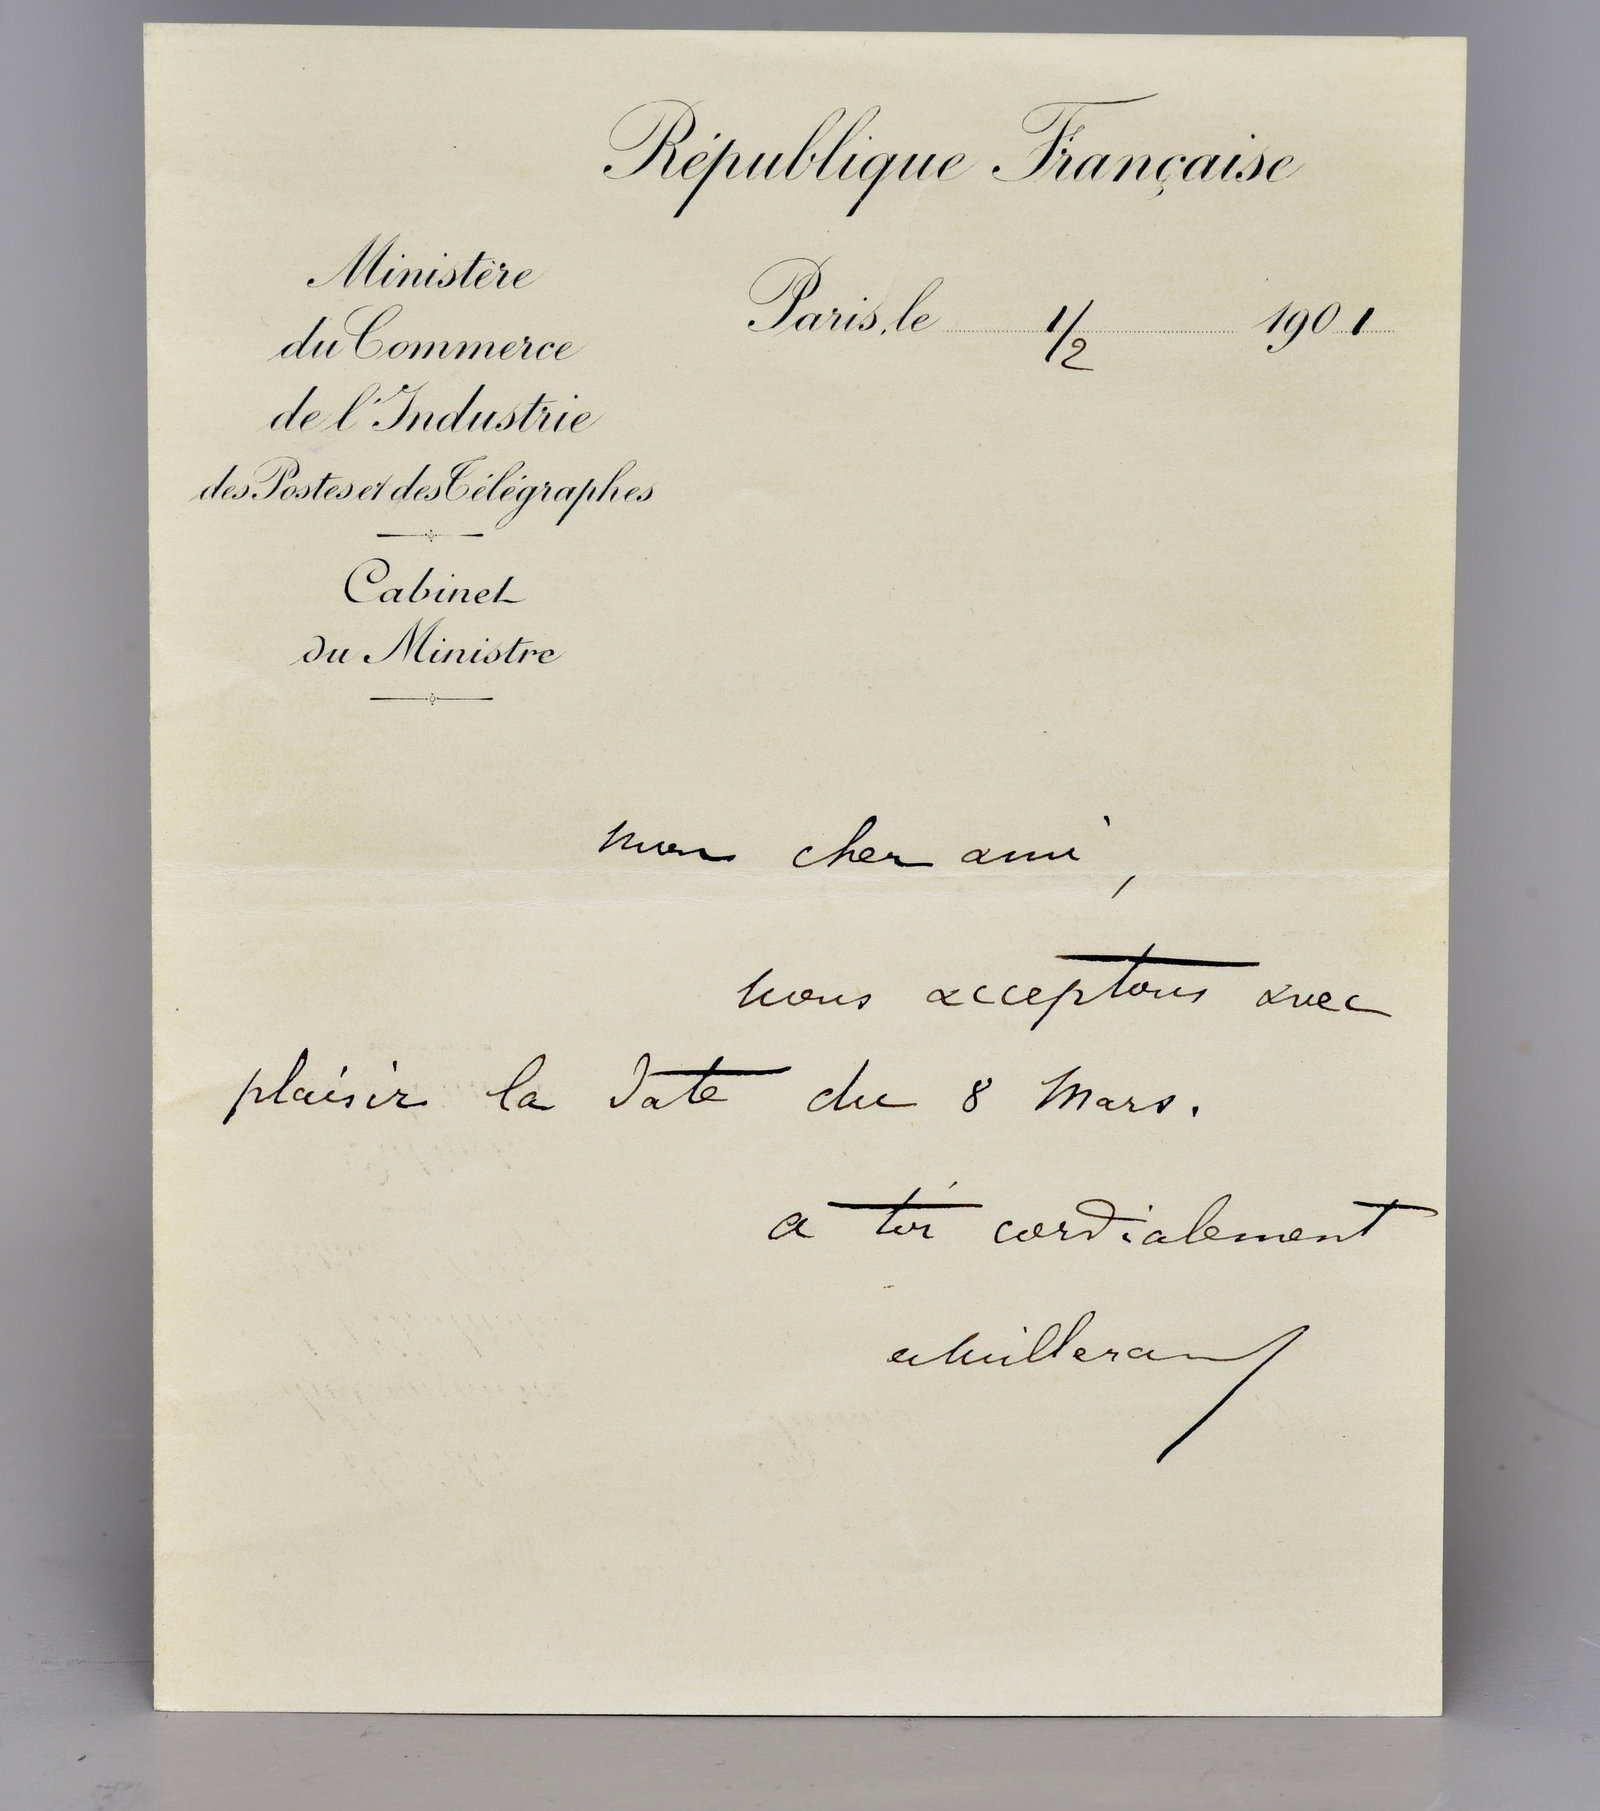 République Française
Ministère
du Commerce
de l'Industrie
des Postes et des Télégraphes
Cabinet
du Ministre
Paris, le 1/2 1901
Mon cher ami,
nous acceptons avec
plaisir la date du 8 Mars.
a toi cordialement
AMillerand